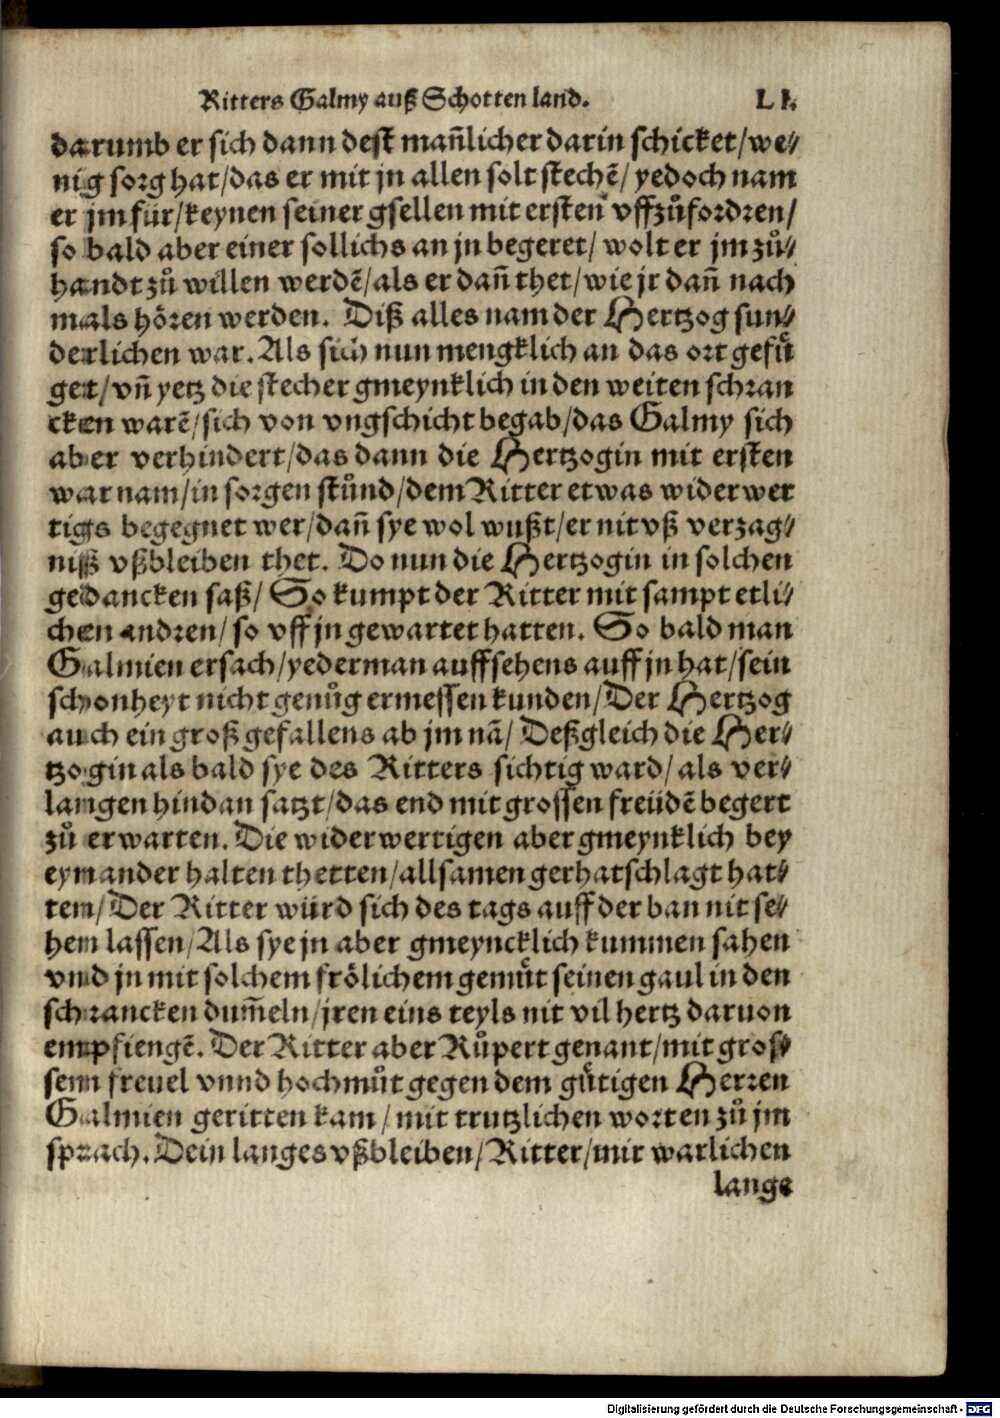 Ritters Galmy auß Schotten land. LI.
darumb er sich dann dest mañlicher darin schicket/we⸗
nig sorg hat/das er mit jn allen solt stechẽ/ yedoch nam
er jm für/keynen seiner gsellen mit ersten vffzůfordren/
so bald aber einer sollichs an jn begeret/ wolt er jm zů⸗
handt zů willen werdẽ/als er dañ thet/wie jr dañ nach
mals hören werden. Diß alles nam der Hertzog sun⸗
derlichen war. Als sich nun mengklich an das ort gefů
get/vñ yetz die stecher gmeynklich in den weiten schran
cken warẽ/sich von vngschicht begab/das Galmy sich
aber verhindert/das dann die Hertzogin mit ersten
war nam/in sorgen stůnd/dem Ritter etwas widerwer
tigs begegnet wer/dañ sye wol wußt/er nit vß verzag⸗
niß vßbleiben thet. Do nun die Hertzogin in solchen
gedancken saß/ So kumpt der Ritter mit sampt etli⸗
chen andren/ so vff jn gewartet hatten. So bald man
Galmien ersach/yederman auffsehens auff jn hat/sein
schonheyt nicht genůg ermessen kunden/Der Hertzog
auch ein groß gefallens ab jm nã/ Deßgleich die Her⸗
tzogin als bald sye des Ritters sichtig ward/ als ver⸗
langen hindan satzt/das end mit grossen freüdẽ begert
zů erwarten. Die widerwertigen aber gmeynklich bey
eynander halten thetten/allsamen gerhatschlagt hat⸗
ten/Der Ritter würd sich des tags auff der ban nit se⸗
hen lassen/Als sye jn aber gmeyncklich kummen sahen
vnd jn mit solchem frölichem gemůt seinen gaul in den
schrancken dum̃eln/jren eins teyls nit vil hertz daruon
empfiengẽ. Der Ritter aber Růpert genant/mit gros⸗
sem freuel vnnd hochmůt gegen dem gütigen Herren
Galmien geritten kam/mit trutzlichen worten zů jm
sprach. Dein langes vßbleiben/Ritter/mir warlichen
lange
Digitalisierung gefördert durch die Deutsche Forschungsgemeinschaft - DFG